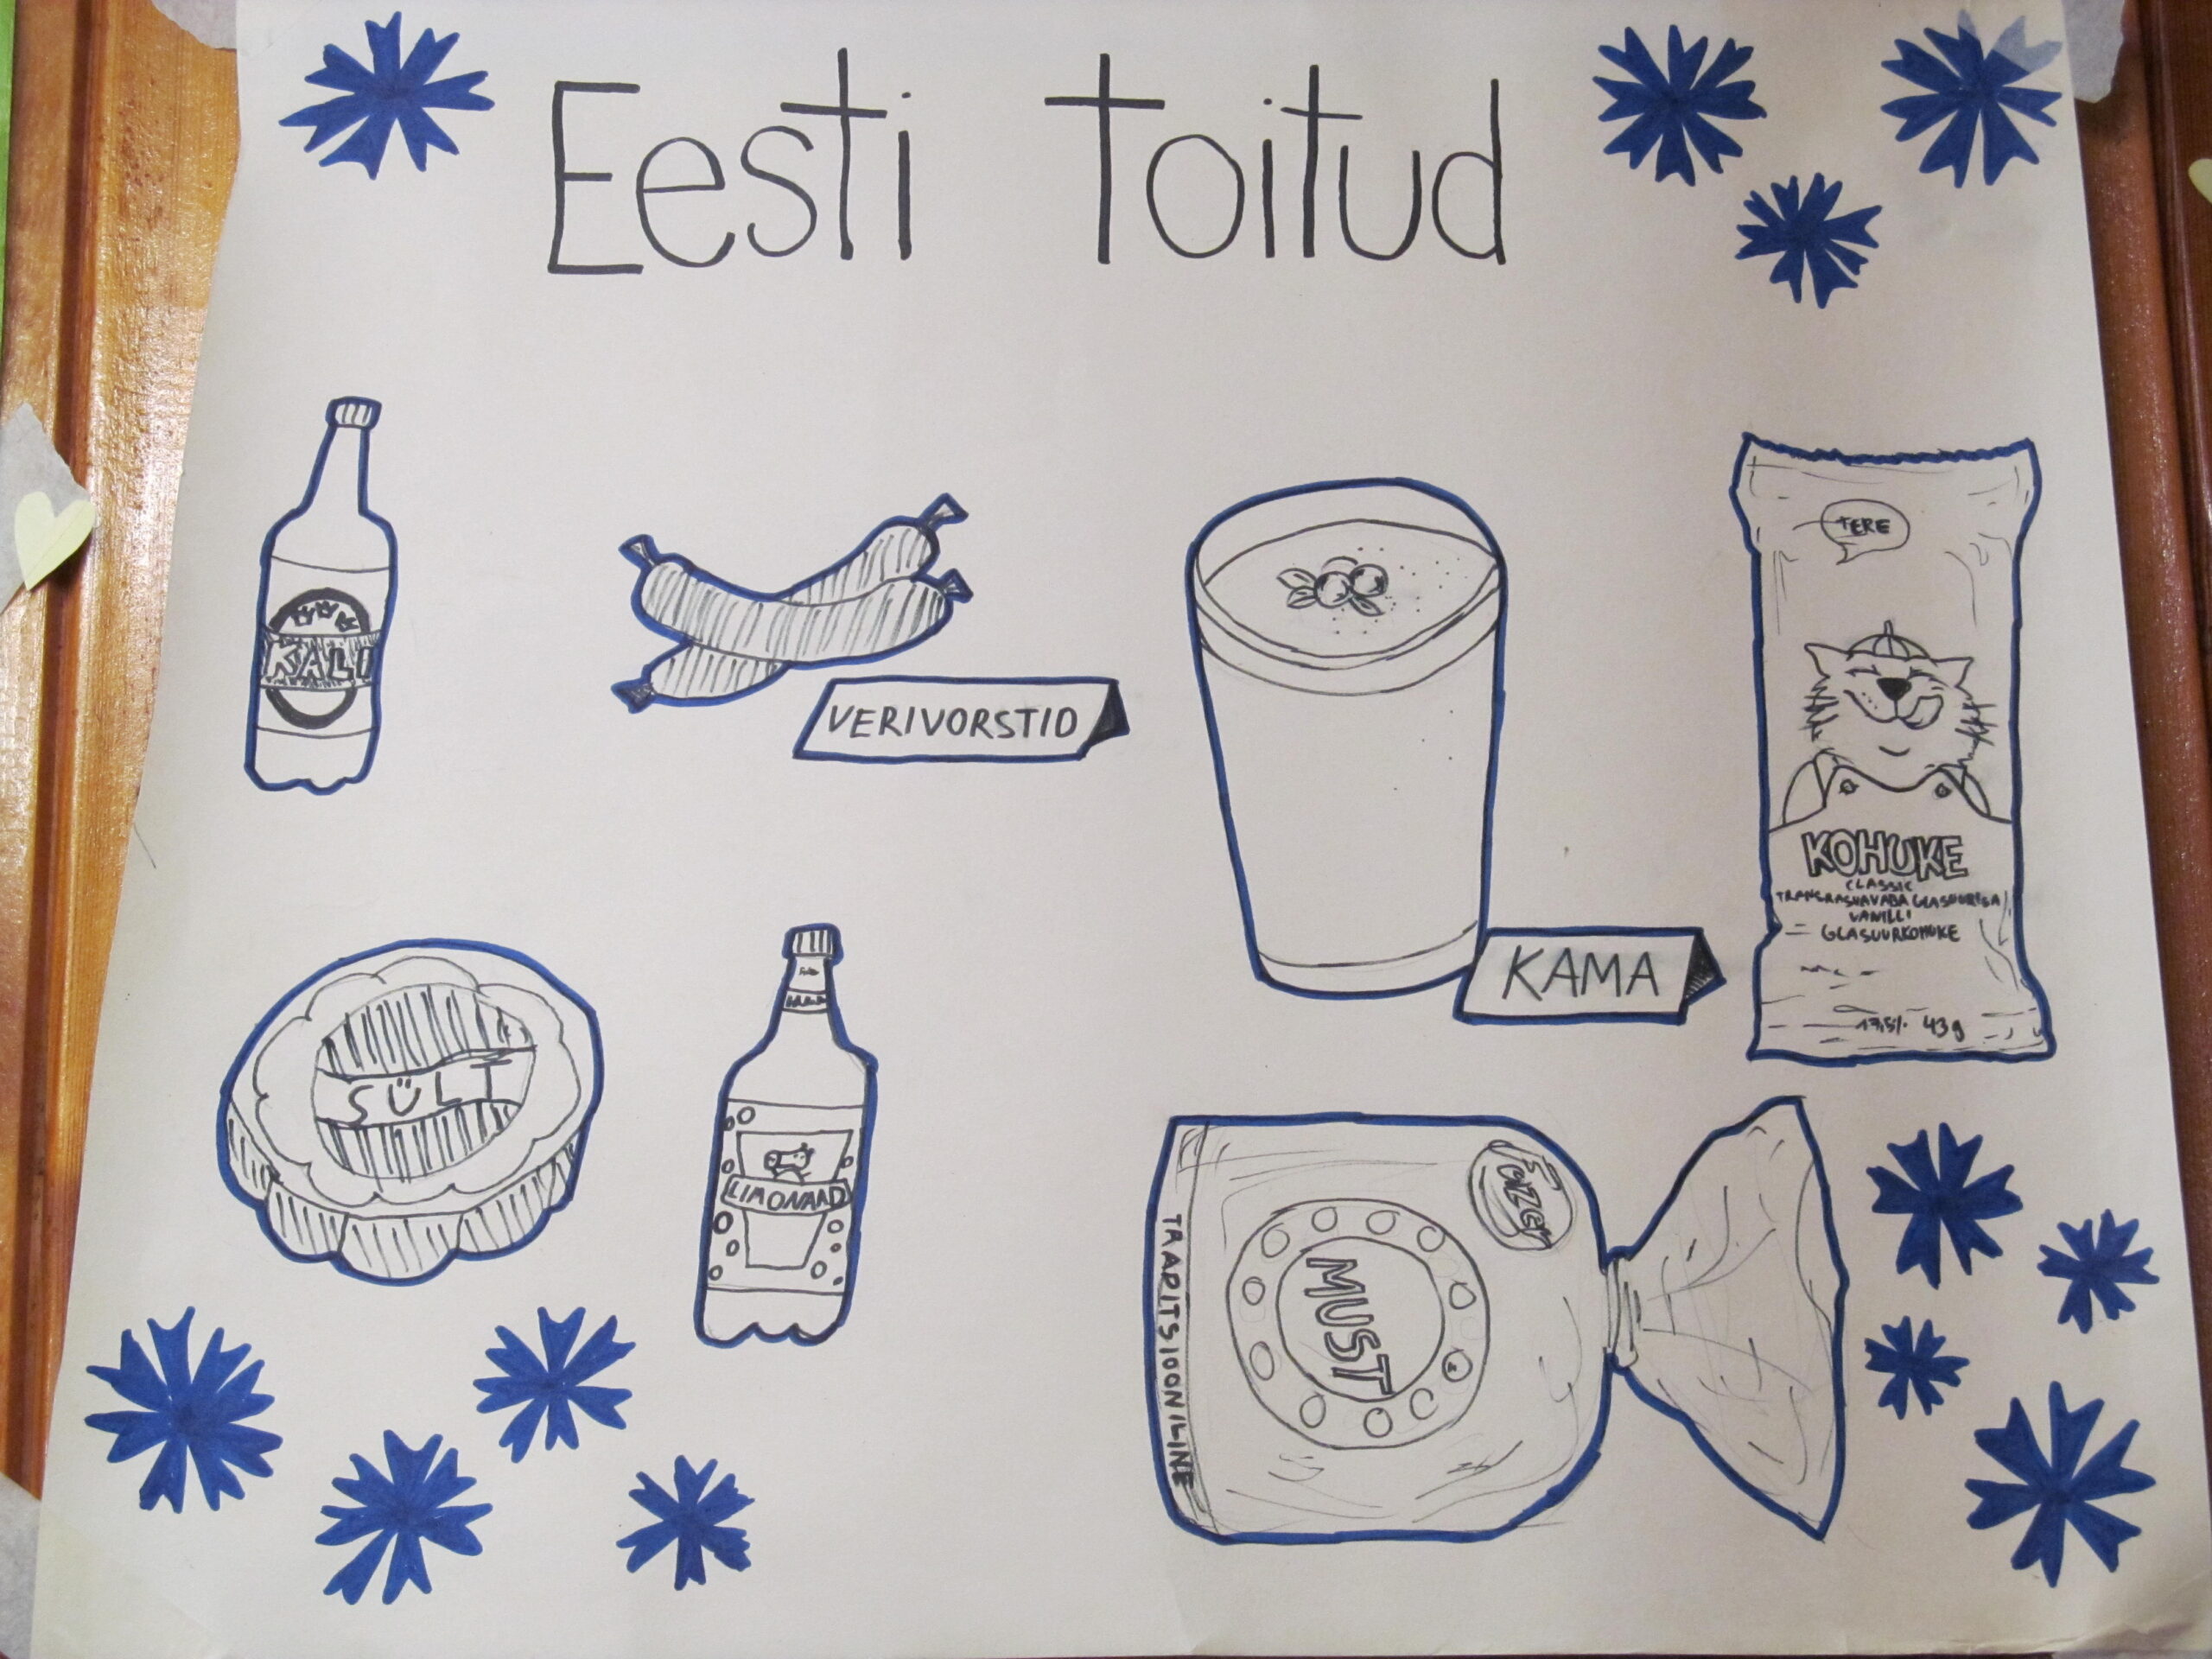 Eesti toitud
KALI
VERIVORSTID
KAMA
TERE
KOHUKE
CLASSIC
TRANSRASVAVABA GLASUURIGA
VANILLI
GLASUURKOHUKE
43g
SÜLT
LIMONAAD
Fazer
MUST
TRADITSIOONILINE